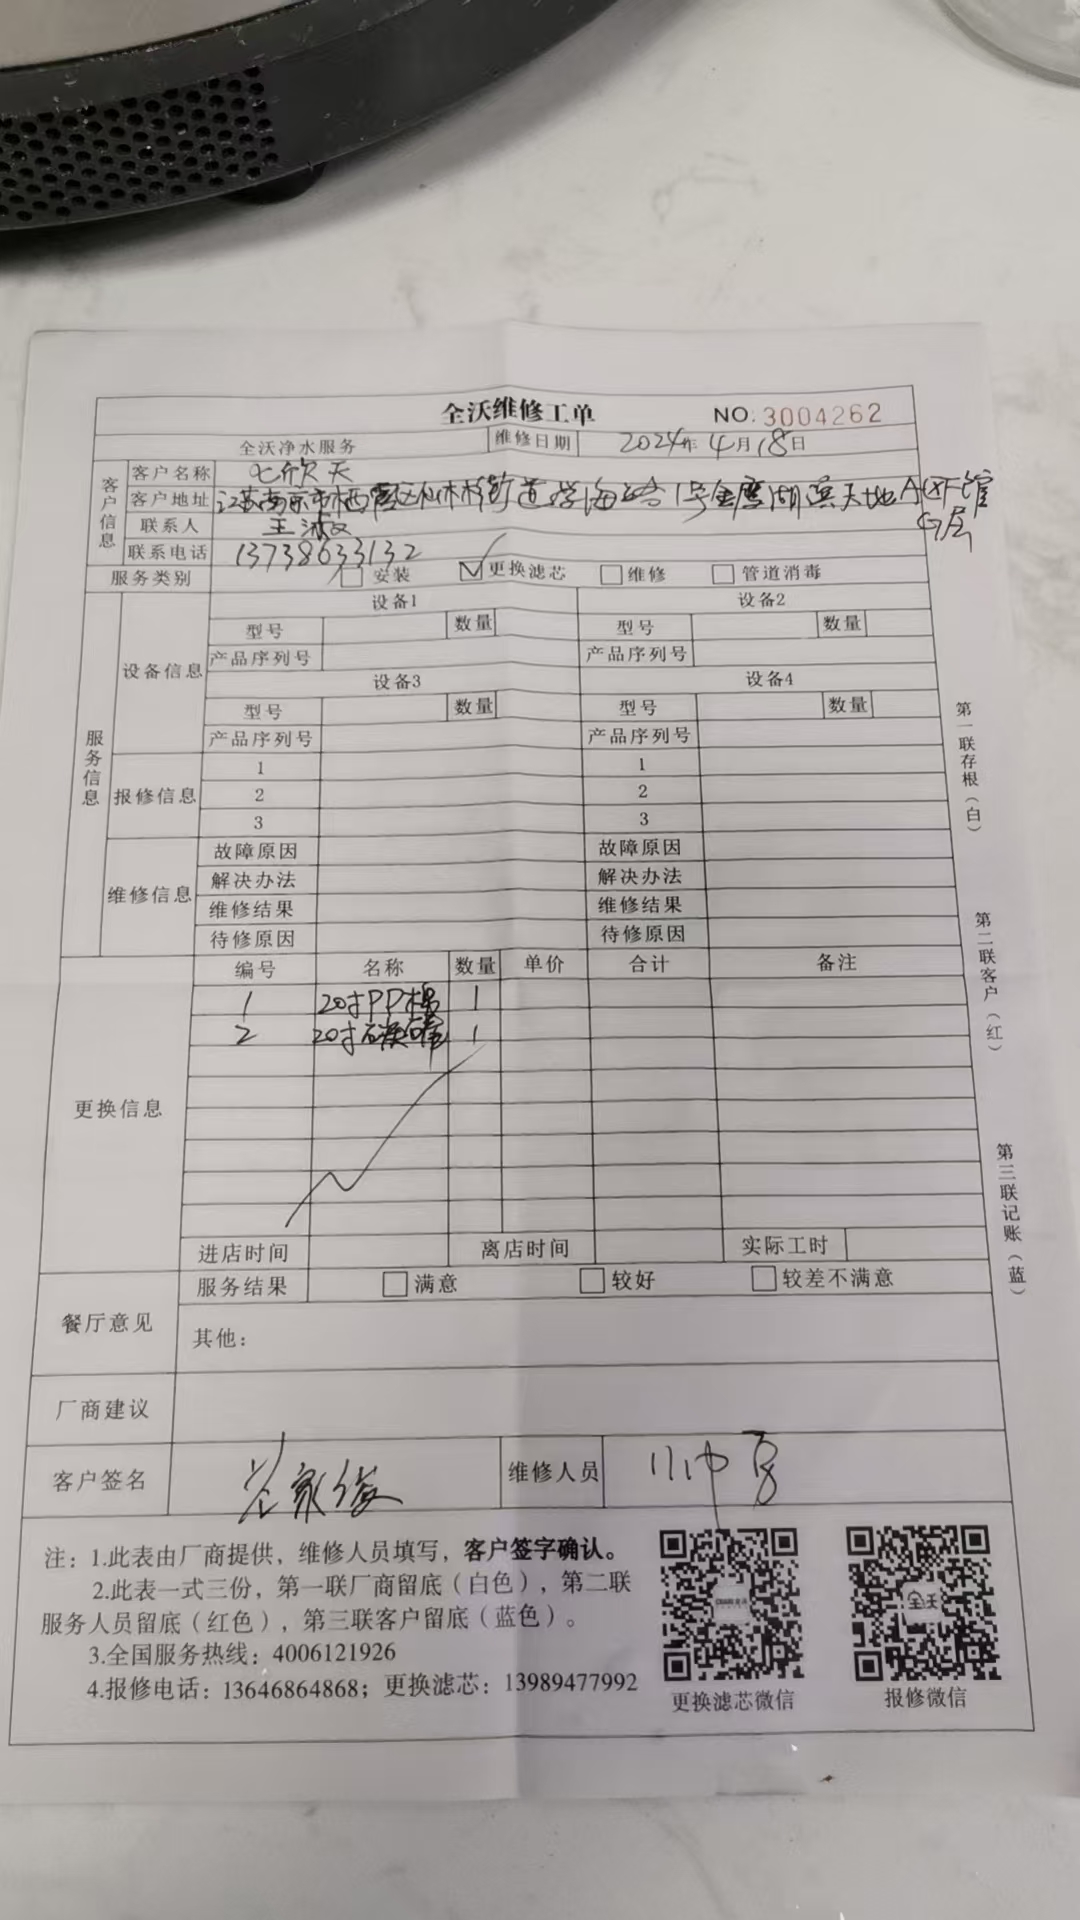 全沃维修工单 NO. 3004262
全沃净水服务 维修日期 2024年4月18日
客户信息
客户名称 七欣天
客户地址 江苏南京市栖霞区仙林街道学海路1号金鹰湖滨天地A区F馆
G层
联系人 王淑
联系电话 13738633132
服务类别 安装 更换滤芯 维修 管道消毒
服务信息
设备信息
设备1 设备2
型号 数量 型号 数量
产品序列号 产品序列号
设备3 设备4
型号 数量 型号 数量
产品序列号 产品序列号
报修信息
1 1
2 2
3 3
维修信息
故障原因 故障原因
解决办法 解决办法
维修结果 维修结果
待修原因 待修原因
更换信息
编号 名称 数量 单价 合计 备注
1 20寸PP棉 1
2 20寸硅磷 1
进店时间 离店时间 实际工时
餐厅意见
服务结果 满意 较好 较差不满意
其他：
厂商建议
客户签名 家俊 维修人员
注：1.此表由厂商提供，维修人员填写，客户签字确认。
2.此表一式三份，第一联厂商留底（白色），第二联
服务人员留底（红色），第三联客户留底（蓝色）。
3.全国服务热线：4006121926
4.报修电话：13646864868；更换滤芯：13989477992
更换滤芯微信
报修微信
全沃
第一联存根（白）
第二联客户（红）
第三联记账（蓝）